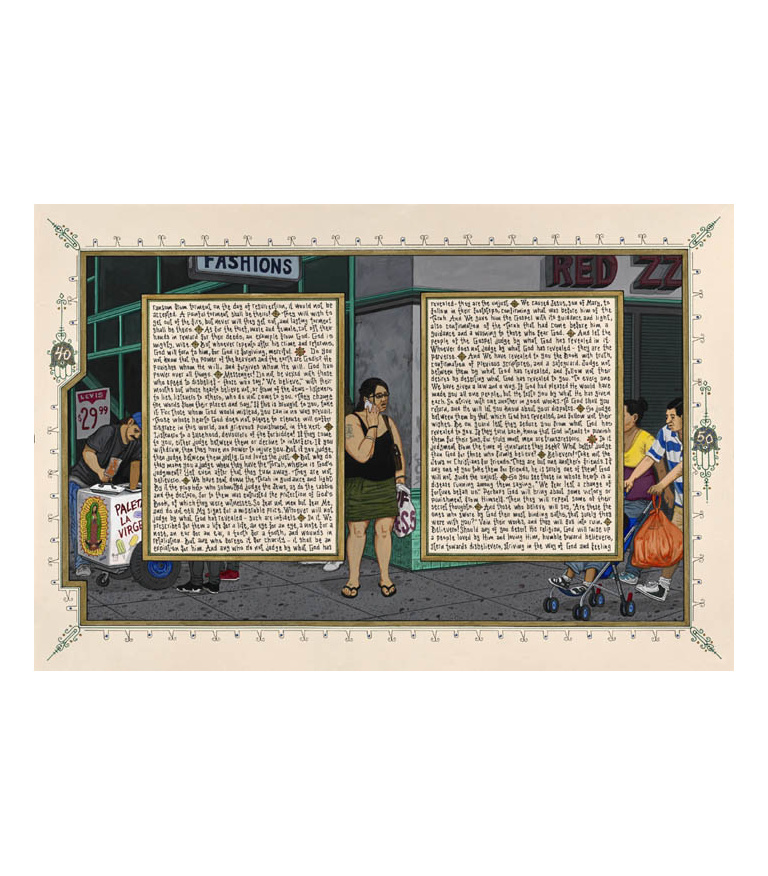 FASHIONS
RED ZZ
40
50
LEVIS
$29.99
PALET
LA
VIRGE
ransom from torment, on the day of resurrection, it would not be
accepted. A painful torment shall be theirs! They will wish to
get out of the fire, but never will they get out, and lasting torment
shall be theirs. As for the thief, male and female, cut off their
hands in reward for their deeds, an example from God. God is
mighty, wise. But whoever repents after his crime and reforms,
God will turn to him, for God is forgiving, merciful. Do you
not know that the power of the heavens and the earth are God's? He
punishes whom He will, and forgives whom He will. God has
power over all things. Messenger! Do not be vexed with those
who speed to disbelief - those who say, "We believe," with their
mouths but whose hearts believe not, or from of the Jews - listeners
to lies, listeners to others, who do not come to you. They change
the words from their places and say, "If this is brought to you, take
it. For those whom God would mislead, you can in no way prevail.
Those whose hearts God does not please to cleanse will suffer
disgrace in this world, and grievous punishment in the next.
Listeners to a falsehood, devourers of the forbidden! If they come
to you, either judge between them or decline to interfere. If you
withdraw, then they have no power to injure you. But if you judge,
then judge between them justly. God loves the just. But why do
they make you a judge when they have the Torah, wherein is God's
judgment? Yet even after that they turn away. They are not
believers. We have sent down the Torah in guidance and light
By it the prophets who submitted judge the Jews, as do the rabbis
and the doctors, for to them was entrusted the protection of God's
Book, of which they were witnesses. So fear not men but fear Me,
and do not sell My signs for a miserable price. Whoever will not
judge by what God has revealed - such are infidels. In it We
prescribed for them a life for a life, an eye for an eye, a nose for a
nose, an ear for an ear, a tooth for a tooth, and wounds in
retaliation. But any who forgoes it for charity - it shall be an
expiation for him. And any who do not judge by what God has
revealed - they are the unjust. We caused Jesus, son of Mary, to
follow in their footsteps, confirming what was before him of the
Torah. And We gave him the Gospel with its guidance and light,
also confirmation of the Torah that had come before him a
guidance and a warning to those who fear God. And let the
people of the Gospel judge by what God has revealed in it.
Whoever does not judge by what God has revealed - they are the
perverse. And We have revealed to you the Book with truth,
confirmation of previous scriptures, and a safeguard. Judge not
between them by what God has revealed, and follow not their
desire by deserting what God has revealed to you. To every one
We have given a law and a way. If God had wanted, He would have
made you all one people, but He tests you by what He has given
each. So strive with one another in good works. To God shall you
return, and He will let you know about your disputes. So judge
between them by that which God has revealed, and follow not their
wishes. Be on guard lest they seduce you from what God has
revealed to you. If they turn back, know that God intends to punish
them for their sins, for truly most men are transgressors. Do it
judgment from the time of ignorance they seek? What better judge
than God for those who firmly believe? Believers! Take not the
Jews or Christians for friends. They are but one another's friends. If
any one of you take them for friends, he is surely one of them! God
will not guide the unjust. So you see those in whose hearts is a
disease running among them saying, "We fear lest a change of
fortune befall us." Perhaps God will bring about some victory or
punishment from Himself. Then they will repent some of their
secret thoughts. And those who believe will say, "Are these the
ones who swore by God their most binding oaths, that surely they
were with you?" Vain their works, and they will fall into ruin.
Believers! Should any of you desert his religion, God will raise up
a people loved by Him and loving Him, humble toward believers,
stern towards disbelievers, striving in the way of God and fearing